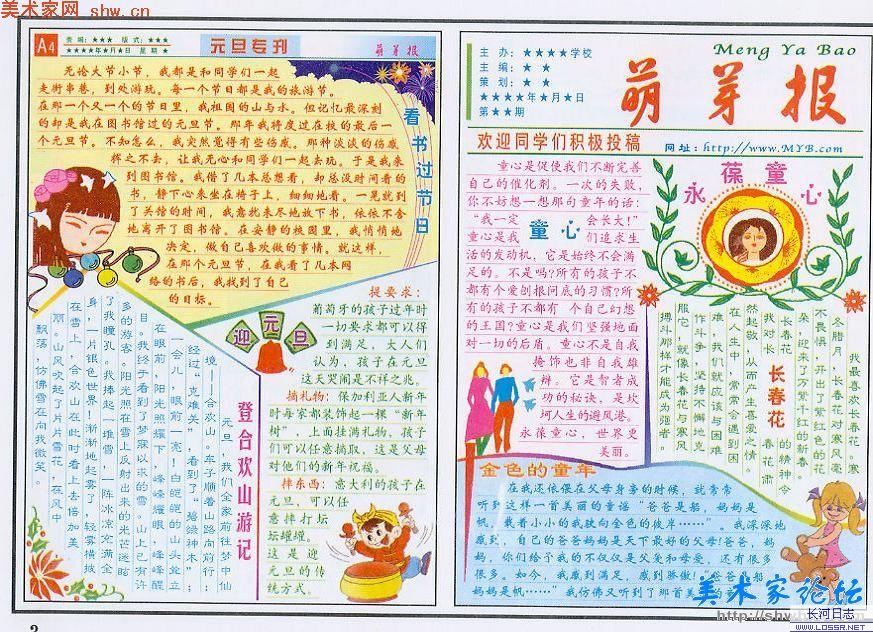 美术家网
http: shw.cn
A4
责编：★★★ 版式：★★★
★★★★年★月★日 星期 ★
元旦专刊
萌芽报
无论大节小节，我都是和同学们一起
走街串巷，到处游玩。每一个节日都是我的旅游节。
在那一个又一个的节日里，我祖国的山与水。但记忆最深刻
的却是我在图书馆过的元旦节。那年我将度过在校的最后一
个元旦节。不知怎么，我突然觉得有些伤感。那种淡淡的伤感
挥之不去，让我无心和同学们一起去玩。于是我来
到图书馆。我借了几本总想看，却总没时间看的
书，静下心来坐在椅子上，细细地看。一晃就到
了关馆的时间，我意犹未尽地放下书，依依不舍
地离开了图书馆。在安静的校园里，我悄悄地
决定，做自己喜欢做的事情。就这样，
在那个元旦节，在我看了几本网
络的书后，我找到了自己
的目标。
看书过节日
提要求：
葡萄牙的孩子过年时
一切要求都可以得
到满足，大人们
认为，孩子在元旦
这天哭闹是不祥之兆。
摘礼物：保加利亚人新年
时每家都装饰起一棵“新年
树”，上面挂满礼物，孩子
们可以任意摘取，这是父母
对他们的新年祝福。
摔东西：意大利的孩子在
元旦，可以任
意摔打坛
坛罐罐。
这是迎
元旦的传
统方式。
迎元旦
登合欢山游记
元旦，我们全家前往梦中仙
境——合欢山。车子顺着山路向前行；
经过“克难关”，看到了“碧绿神木”；
一会儿，眼前一亮！白皑皑的山头耸立
在眼前，阳光照耀下，峰峰耀眼，峰峰醒
目。我终于看到了梦寐以求的雪。山上已有许
多的游客。阳光照在雪上反射出来的光芒迷眩
了我瞳孔。我捧起一堆雪，一阵冰凉充满全
身，一片银色世界！渐渐地起雾了，轻雾横披
在雪上，合欢山在此时看上去倍加美
丽。山风吹起了片片雪花，在风中
飘落，仿佛雪在向我微笑。
2
主 办：★★★★学校
主 编：★ ★
策 划：★ ★
★★★★年★月★日
第★★期
Meng Ya Bao
萌芽报
欢迎同学们积极投稿
网址：http://www.MYB.com
童心是促使我们不断完善
自己的催化剂。一次的失败，
你不妨想一想那句童年的话：
“我一定 会长大！”
童心是我 们追求生
活的发动机，它是始终不会满
足的。不是吗？所有的孩子不
都有个爱刨根问底的习惯？所
有的孩子不都有 个自己幻想
的王国？童心是我们坚强地面
对一切的后盾。童心不是自我
掩饰也非自我雄
辩。它是智者成
功的秘诀，是坎
坷人生的避风港。
永葆童心，世界更
美丽。
童心
永葆童心
我最喜欢长春花。寒
冬腊月，长春花对寒风毫
不畏惧，开出了紫红色的花
朵，迎来了万紫千红的新春。
长春花 的精神令
我对长 春花肃
然起敬，从而产生喜爱之情。
在人生中，常常会遇到困
难，我们就应该与困难
作斗争，坚持不懈地克
服它，就像长春花与寒风
搏斗那样才能成为强者。
长春花
金色的童年
在我还依偎在父母身旁的时候，就常常
听到这样一首美丽的童谣“爸爸是船，妈妈是
帆，载着小小的我驶向金色的彼岸……”。我深深地
感到，自己的爸爸妈妈是天下最好的父母！爸爸，妈
妈，你们给予我的不仅仅是父爱和母爱，还有很多
很多。如今，我感到满足，感到骄傲！“爸爸是船
妈妈是帆……”我仿佛又听到了那首美丽的童
美术家论坛
长河日志
www.LOSSR.NET